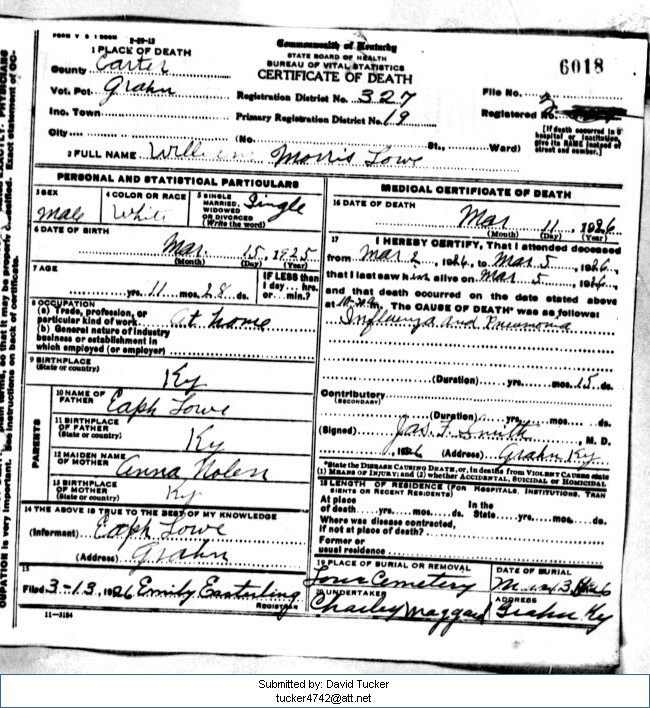 FORM V S 1 3-29-12
Commonwealth of Kentucky
STATE BOARD OF HEALTH
BUREAU OF VITAL STATISTICS
CERTIFICATE OF DEATH
6018
1 PLACE OF DEATH
County Carter
Vot. Pct. Grahn
Inc. Town
City
Registration District No. 327
Primary Registration District No. 19
File No.
Registered No. 2
(No. St., Ward)
[If death occurred in a hospital or institution, give its NAME instead of street and number.]
2 FULL NAME William Morris Lowe
PERSONAL AND STATISTICAL PARTICULARS
3 SEX Male
4 COLOR OR RACE White
5 SINGLE MARRIED, WIDOWED OR DIVORCED (Write the word) Single
6 DATE OF BIRTH
Mar 15, 1925
(Month) (Day) (Year)
7 AGE
yrs. 11 mos. 28 ds.
IF LESS than 1 day... hrs. or... min.?
8 OCCUPATION
(a) Trade, profession, or particular kind of work at home
(b) General nature of industry business or establishment in which employed (or employer)
9 BIRTHPLACE (State or country) Ky
PARENTS
10 NAME OF FATHER Eaph Lowe
11 BIRTHPLACE OF FATHER (State or country) Ky
12 MAIDEN NAME OF MOTHER Anna Nolen
13 BIRTHPLACE OF MOTHER (State or country) Ky
14 THE ABOVE IS TRUE TO THE BEST OF MY KNOWLEDGE
(Informant) Eaph Lowe
(Address) Grahn
15
Filed 3-13, 1926 Emily Easterling
REGISTRAR
11-3184
MEDICAL CERTIFICATE OF DEATH
16 DATE OF DEATH
Mar 11, 1926
(Month) (Day) (Year)
17 I HEREBY CERTIFY, That I attended deceased
from Mar 2, 1926, to Mar 5, 1926,
that I last saw him alive on Mar 5, 1926,
and that death occurred on the date stated above
at m. The CAUSE OF DEATH* was as follows:
Influenza and Pneumonia
(Duration) yrs. mos. 15 ds.
Contributory (SECONDARY)
(Duration) yrs. mos. ds.
(Signed) Jas. F. Smith, M. D.
, 1926 (Address) Grahn Ky
*State the DISEASE CAUSING DEATH, or, in deaths from VIOLENT CAUSES state
(1) MEANS OF INJURY; and (2) whether ACCIDENTAL, SUICIDAL or HOMICIDAL
18 LENGTH OF RESIDENCE (FOR HOSPITALS, INSTITUTIONS, TRANSIENTS OR RECENT RESIDENTS)
At place of death yrs. mos. ds. In the State yrs. mos. ds.
Where was disease contracted, if not at place of death?
Former or usual residence
19 PLACE OF BURIAL OR REMOVAL
Cemetery
DATE OF BURIAL
20 UNDERTAKER
Charley Maggard
ADDRESS
Grahn Ky
Submitted by: David Tucker
tucker4742@att.net